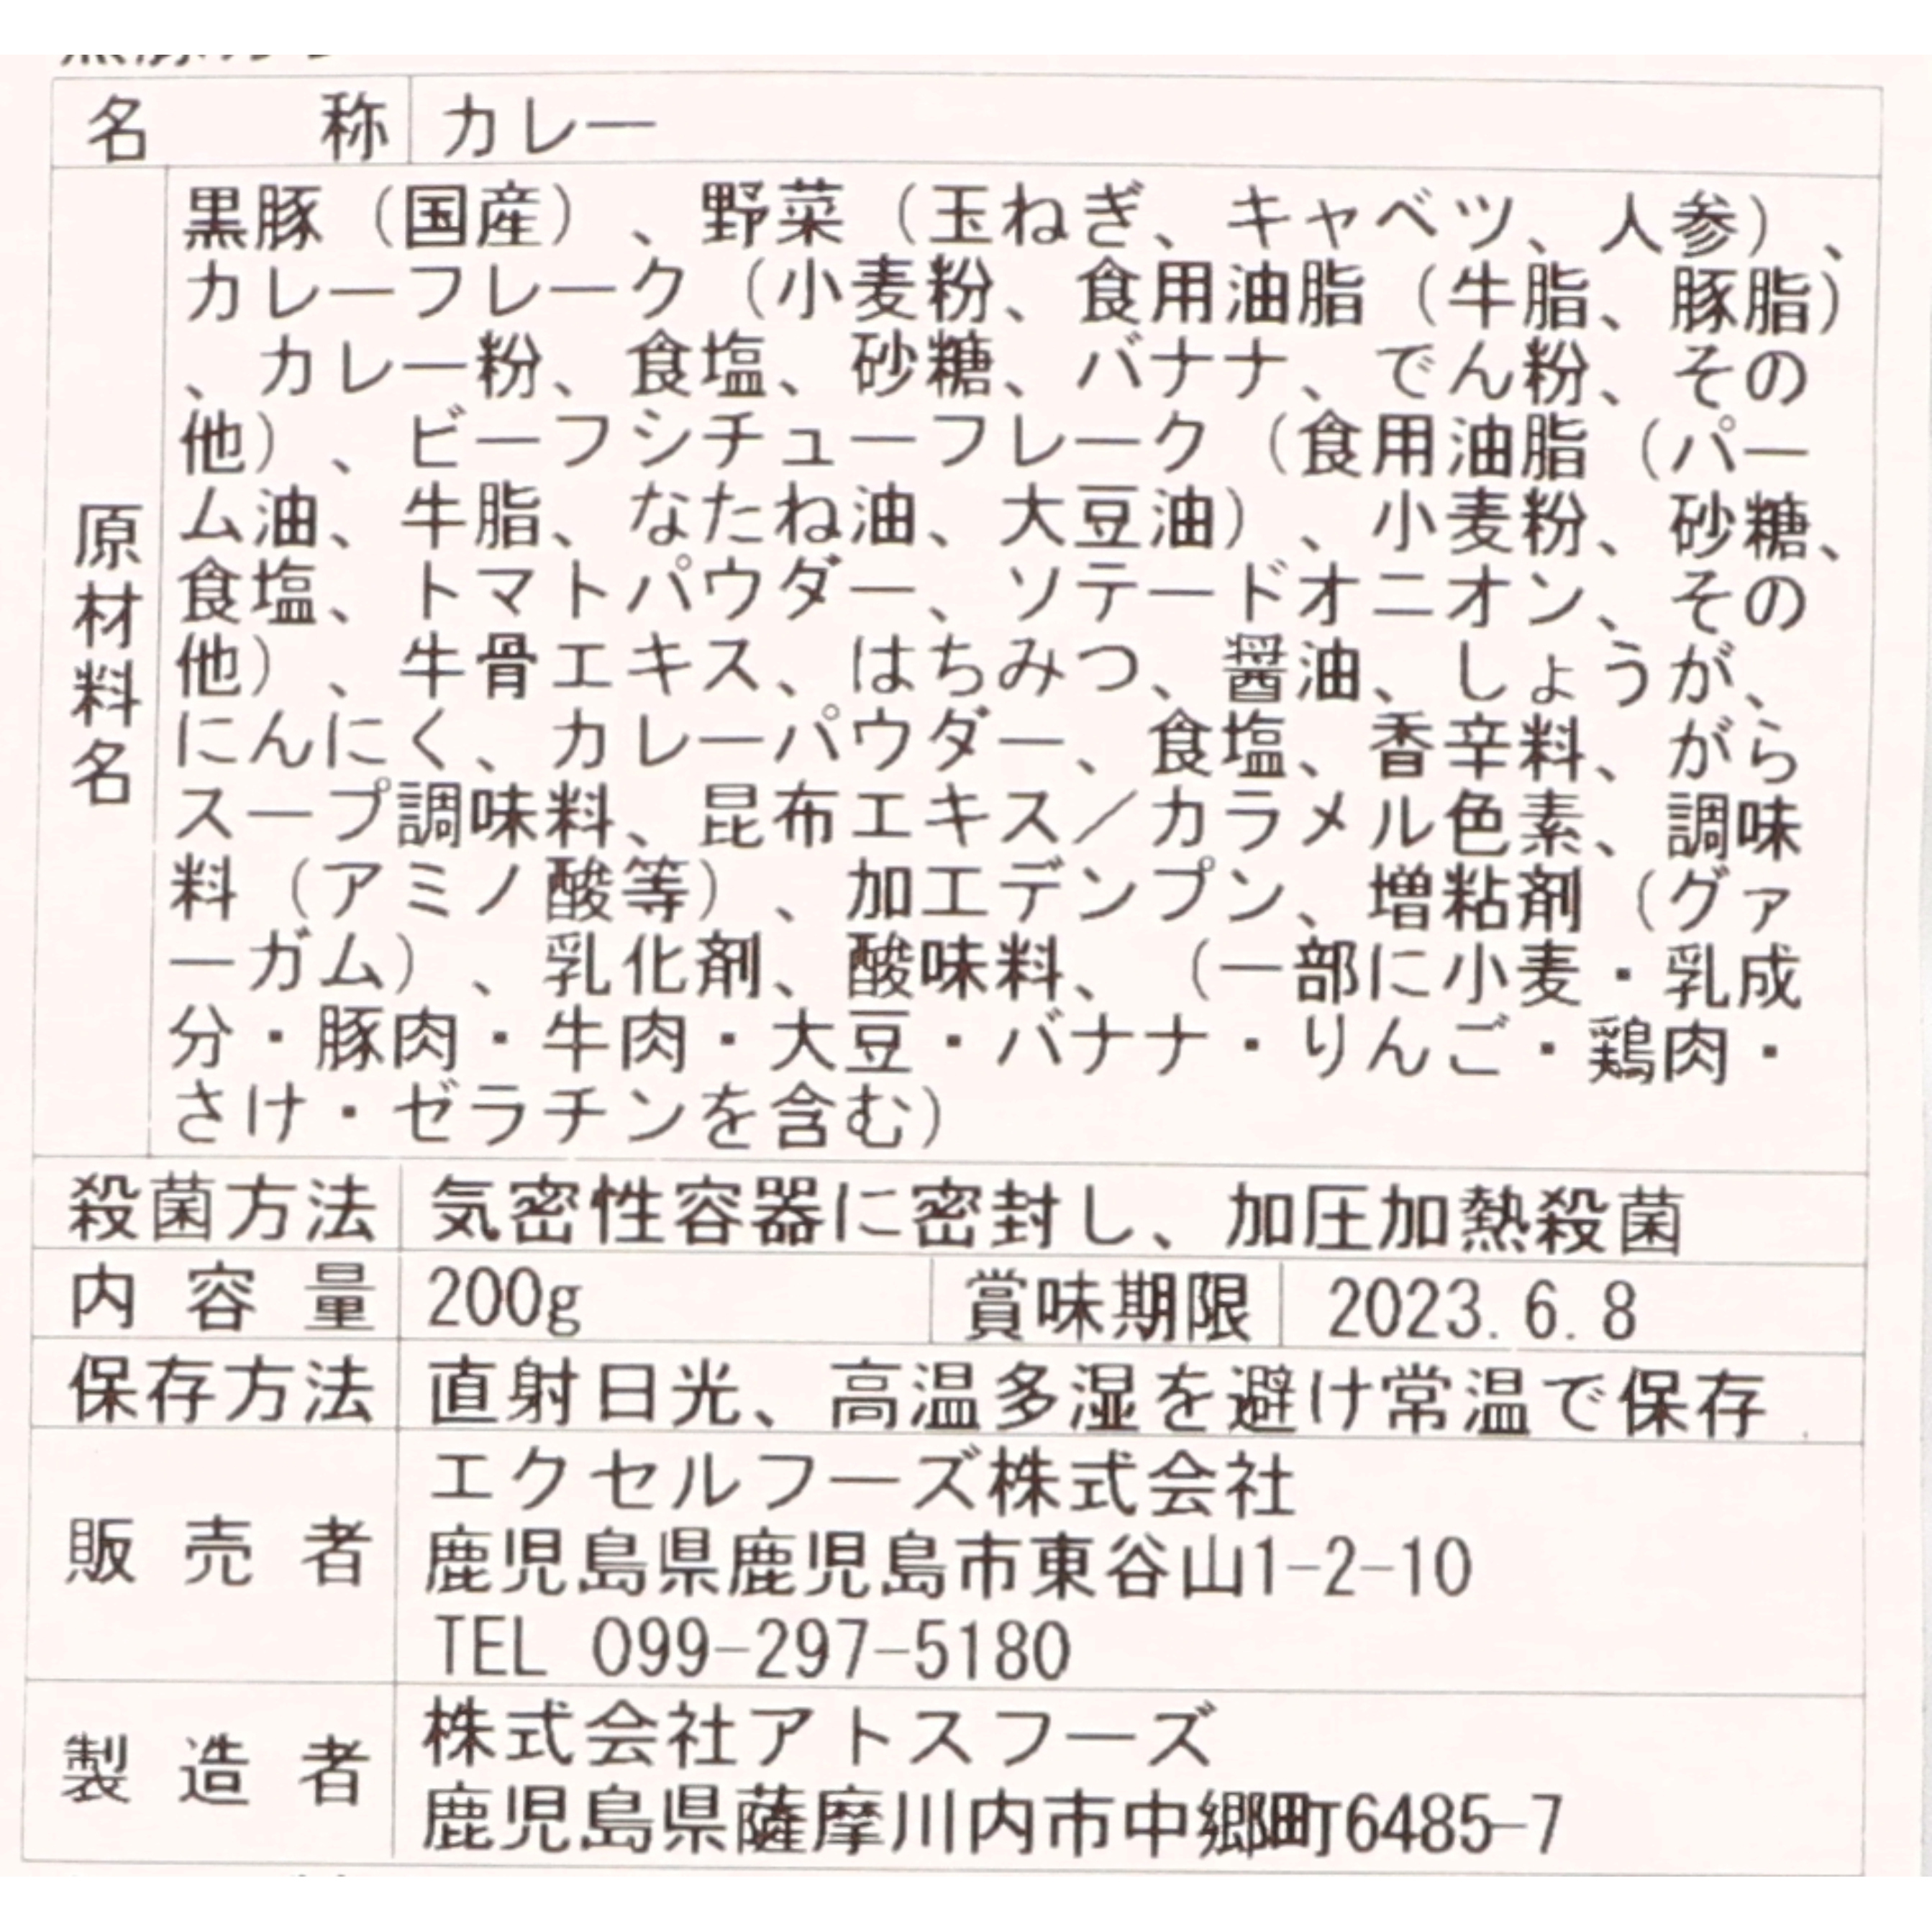 名称 カレー
黒豚（国産）、野菜（玉ねぎ、キャベツ、人参）、
カレーフレーク（小麦粉、食用油脂（牛脂、豚脂）
、カレー粉、食塩、砂糖、バナナ、でん粉、その
他）、ビーフシチューフレーク（食用油脂（パー
ム油、牛脂、なたね油、大豆油）、小麦粉、砂糖、
食塩、トマトパウダー、ソテードオニオン、その
他）、牛骨エキス、はちみつ、醤油、しょうが、
にんにく、カレーパウダー、食塩、香辛料、がら
スープ調味料、昆布エキス／カラメル色素、調味
料（アミノ酸等）、加工デンプン、増粘剤（グァ
ーガム）、乳化剤、酸味料、（一部に小麦・乳成
分・豚肉・牛肉・大豆・バナナ・りんご・鶏肉・
さけ・ゼラチンを含む）
原材料名
殺菌方法 気密性容器に密封し、加圧加熱殺菌
内容量 200g 賞味期限 2023.6.8
保存方法 直射日光、高温多湿を避け常温で保存
販売者 エクセルフーズ株式会社
鹿児島県鹿児島市東谷山1-2-10
TEL 099-297-5180
製造者 株式会社アトスフーズ
鹿児島県薩摩川内市中郷町6485-7